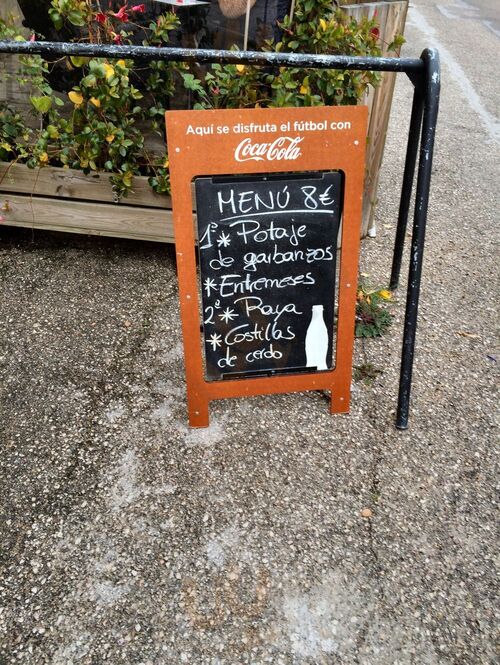 Aquí se disfruta el fútbol con
Coca-Cola
MENÚ 8€
1º * Potaje
de garbanzos
* Entremeses
2º * Raya
* Costillas
de cerdo